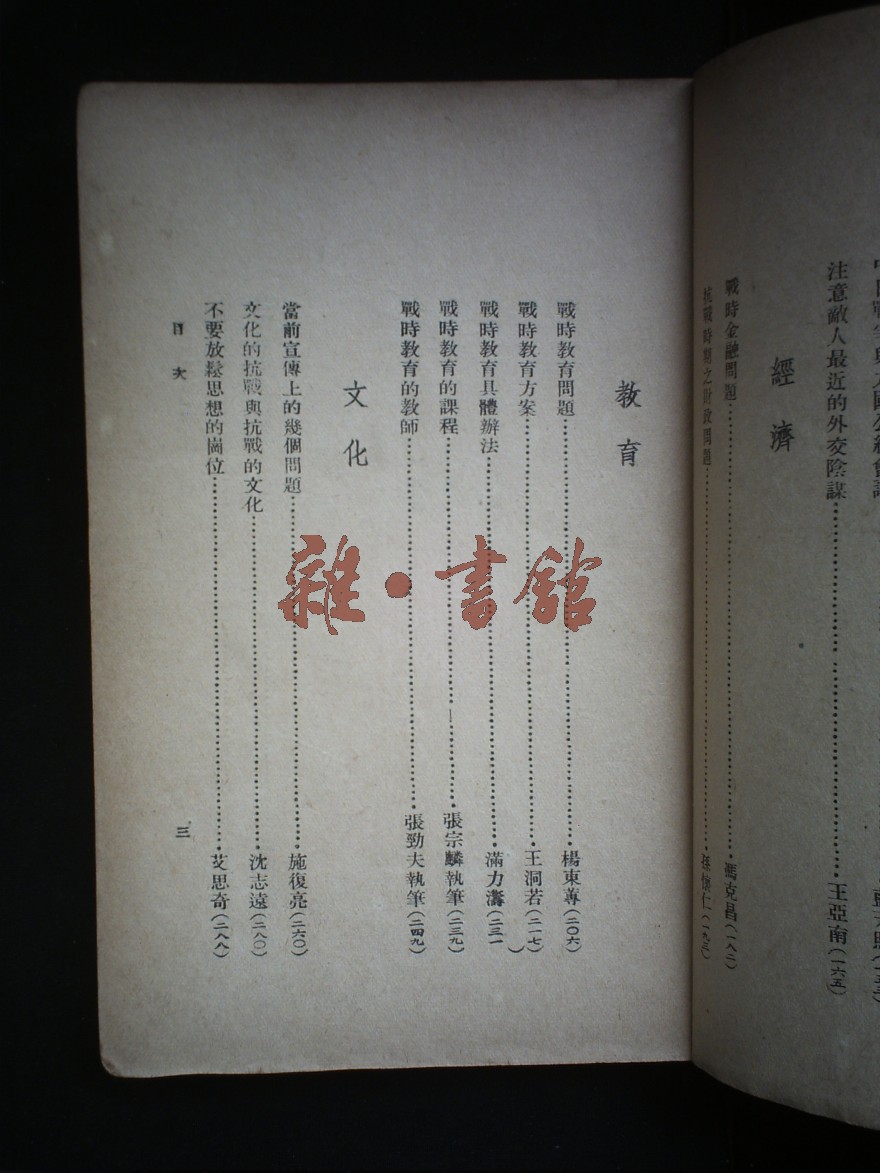 注意敵人最近的外交陰謀……王亞南(一六五)
經濟
戰時金融問題……馮克昌(一八二)
抗戰時期之財政問題……孫懷仁(一九三)
教育
戰時教育問題……楊東蓴(二〇六)
戰時教育方案……王洞若(二一七)
戰時教育具體辦法……滿力濤(二三一)
戰時教育的課程……張宗麟執筆(二三九)
戰時教育的教師……張勁夫執筆(二四九)
文化
當前宣傳上的幾個問題……施復亮(二六〇)
文化的抗戰與抗戰的文化……沈志遠(二八〇)
不要放鬆思想的崗位……艾思奇(二八八)
目次
三
雜·書館